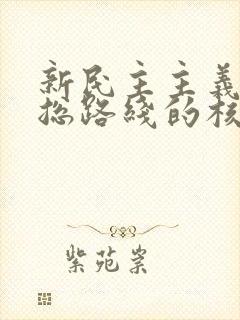 新民主主義
總路綫的核
紫苑